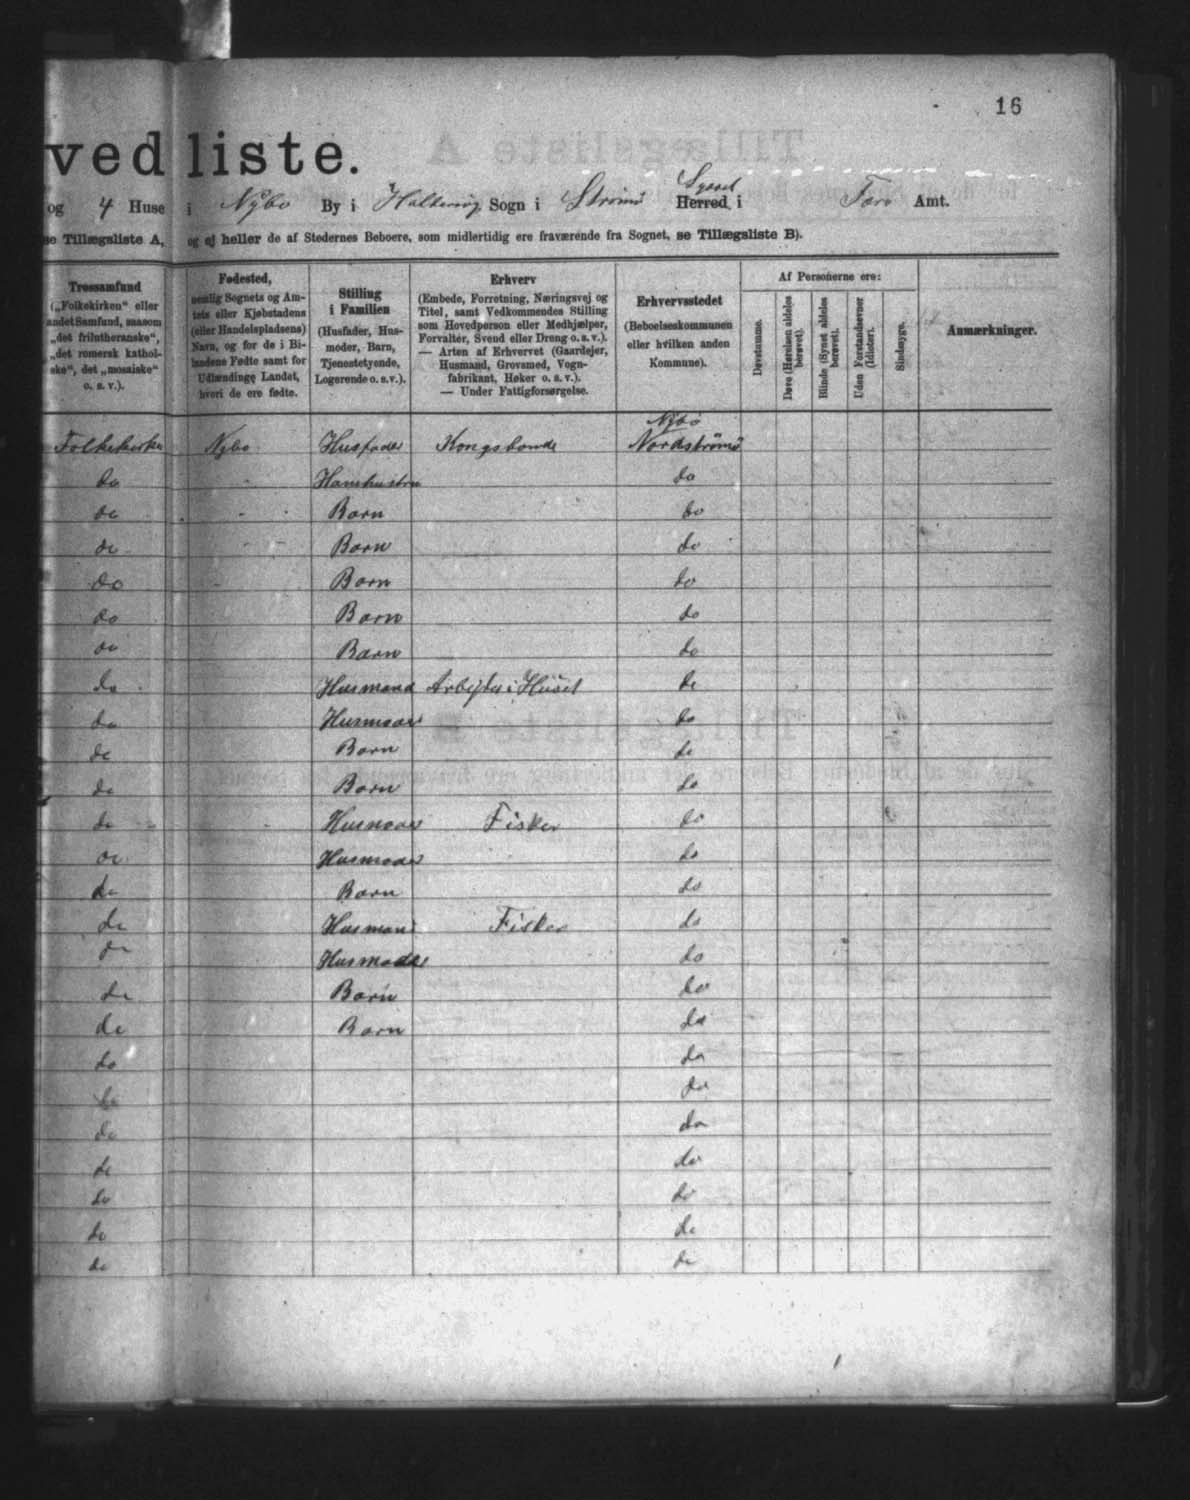 16
ved liste.
og 4 Huse i Nybo By i Haldervig Sogn i Strömö Syssel Herred, i Færø Amt.
se Tillægsliste A, og ej heller de af Stedernes Beboere, som midlertidig ere fraværende fra Sognet, se Tillægsliste B).
Trossamfund
(„Folkekirken“ eller
andet Samfund, saasom
„det frilutheranske“,
„det romersk kathol-
ske“, det „mosaiske“
o. s. v.).
Fødested,
nemlig Sognets og Am-
tets eller Kjøbstadens
(eller Handelspladsens)
Navn, og for de i Bi-
landene Fødte samt for
Udlændinge Landet,
hvori de ere fødte.
Stilling
i Familien
(Husfader, Hus-
moder, Barn,
Tjenestetyende,
Logerende o. s. v.).
Erhverv
(Embede, Forretning, Næringsvej og
Titel, samt Vedkommendes Stilling
som Hovedperson eller Medhjælper,
Forvalter, Svend eller Dreng o. s. v.).
— Arten af Erhvervet (Gaardejer,
Husmand, Grovsmed, Vogn-
fabrikant, Høker o. s. v.).
— Under Fattigforsørgelse.
Erhvervsstedet
(Beboelseskommunen
eller hvilken anden
Kommune).
Af Personerne ere:
Døvstumme.
Døve (Hørelsen aldeles
berøvet).
Blinde (Synet aldeles
berøvet).
Uden Forstandsevner
(Idioter).
Sindssyge.
Anmærkninger.
Nybö
Folkekirken Nybo Husfader Kongsbonde Nordströmö
do Hans hustru do
do Barn do
do Barn do
do Barn do
do Barn do
do Barn do
do Husmand Arbejder i Huset do
do Husmoder do
do Barn do
do Barn do
do Fisker do
do Husmoder do
do Barn do
do Husmand Fisker do
do Husmoder do
do Barn do
do Barn do
do do
do do
do do
do do
do do
do do
do do